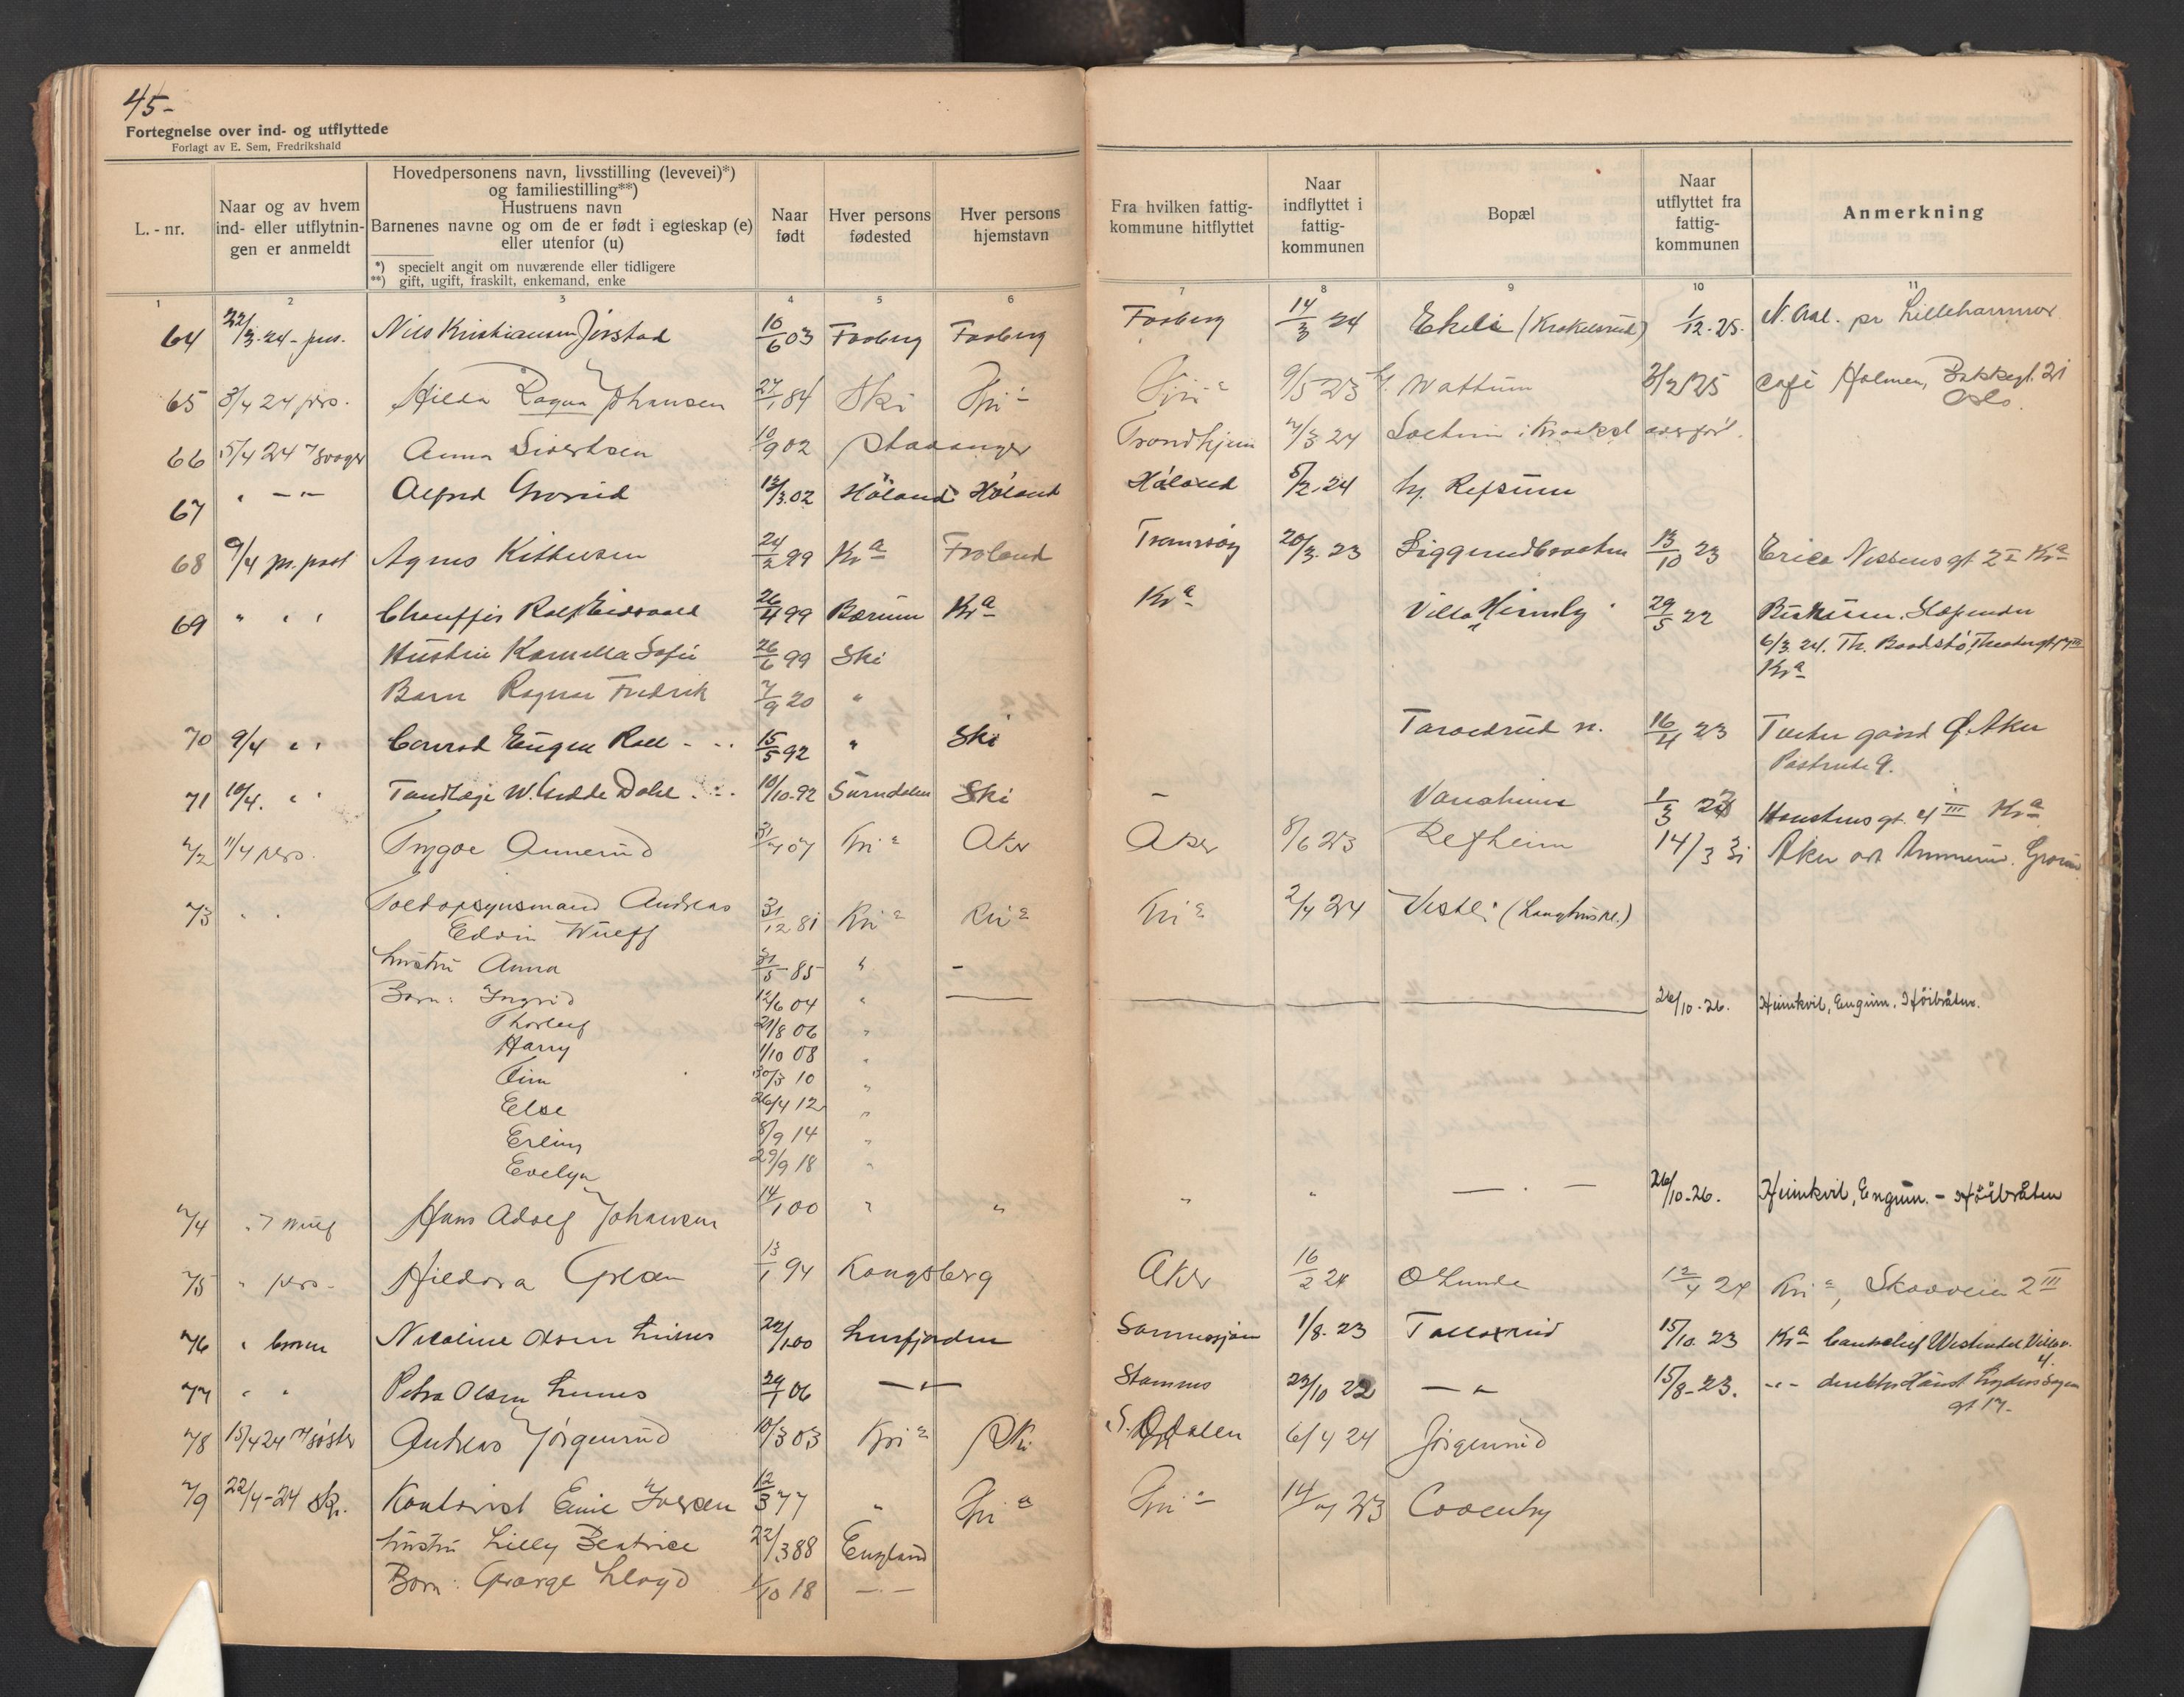 45-
Fortegnelse over ind- og utflyttede
Forlagt av E. Sem, Fredrikshald
L.-nr.
Naar og av hvem ind- eller utflytningen er anmeldt
Hovedpersonens navn, livsstilling (levevei)*)
og familiestilling**)
Hustruens navn
Barnenes navne og om de er født i egteskap (e)
eller utenfor (u)
*) specielt angit om nuværende eller tidligere
**) gift, ugift, fraskilt, enkemand, enke
Naar født
Hver persons fødested
Hver persons hjemstavn
Fra hvilken fattig-kommune hitflyttet
Naar indflyttet i fattig-kommunen
Bopæl
Naar utflyttet fra fattig-kommunen
Anmerkning
1 2 3 4 5 6 7 8 9 10 11
64 22/3-24- pers. Nils Kristiansen Jørstad 16/6 03 Faaberg Faaberg Faaberg 14/3 24 Ekeli (Krakelsrud) 1/12-25. N. Aal. pr Lillehammer
65 3/4 24 pers. Hilda Ragna Johansen 27/1 84 Ski Kri a Kri a 9/5 23 Wattum 3/2 25 Café Holmen, Bakkegt. 21
Oslo.
66 5/4 24 Anna Sivertsen 10/9 02 Stavanger Trondhjem 7/3 24
67 " —"— Alfred Grorud 12/3.02 Høland Høland Høland 5/2.24 hj. Refsum
68 9/4 pr. post Agnes Kittelsen 24/2 99 Kr a Froland Tromsø 20/3. 23 13/10 23 Erica Nissens gt 2 I Kr a
69 " " " Chauffør Ralf Eidsvaald 26/4 99 Bærum Kr a Kr a Villa Heimly 29/5 22 Slependen
Hustru Kamilla Sofie 26/6 99 Ski 6/3 24. Th. Theatergt
Kr a
Barn Ragnar Fredrik 7/9 20 "
70 9/4 " " Conrad Eugen Roll 15/5 92 " Ski Taraldrud n. 16/4 23 Tveter gaard Ø. Aker
Postrute 9.
71 10/4. " " Tandlæge W. Dahl 10/10-92 Surndalen Ski - 1/3 24 gt. 4 III Kr a
72 11/4 pers. Trygve Ammerud 31/7 07 Kri a Aker Aker 8/6 23 Refheim 14/3 31 Aker adr Ammerud. Grorud
73 " " Toldopsynsmand Andreas
Edvin Wulff 31/12 81 Kri a Kri a Kri a 2/4 24 Vestli (Langhus st.)
hustru Anna 31/5-85 " -
Barn: Ingrid 12/6 04 " 26/10-26. Heimkvil, Engum. Høibråten.
Thorleif 21/8 06 "
Harry 1/10 08 "
30/3 10 "
Else 26/4 12 "
Erling 8/9 14 "
Evelyn 29/9 18 "
74 " Wulf Hans Adolf Johansen 14/1 00 " " " " — " — 26/10-26. Heimkvil, Engum. - Høibråten
75 " pers. Hildora Olsen 13/1 94 Kongsberg Aker 16/2 24 O Lunde 12/4 24 Kri a, Skovveien 2 III
76 " Nicoline Olsen Lunes 22/1 00 Lursfjorden 1/8. 23 15/10. 23 Kr a
77 " " Petra Olsen Lunes 29/1 06 —"— Stamnes 23/10 22 —"— 15/8-23. -"-
gt 17.
78 15/4 24 søster Andreas Jørgenrud 10/3 03 Kri a Ski S. Odalen 6/4 24 Jørgenrud
79 22/4-24 Kontorist Emil Iversen 12/3 77 " Kri a Kri a 14/7 23 Coventry
hustru Lilly Beatrice 22/3 88 England
Barn: George Lloyd 1/10 18 —"—